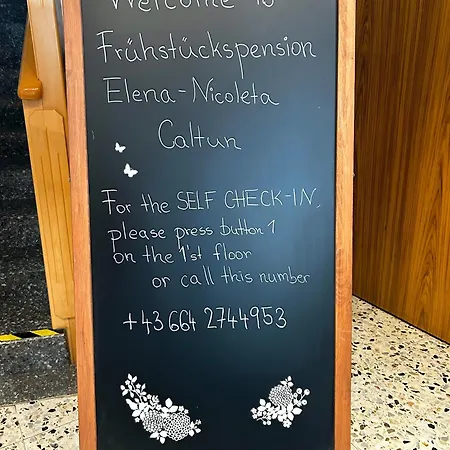 Welcome to
Frühstückspension
Elena-Nicoleta
Caltun
For the SELF CHECK-IN,
please press button 1
on the 1'st floor
or call this number
+43 664 2744953